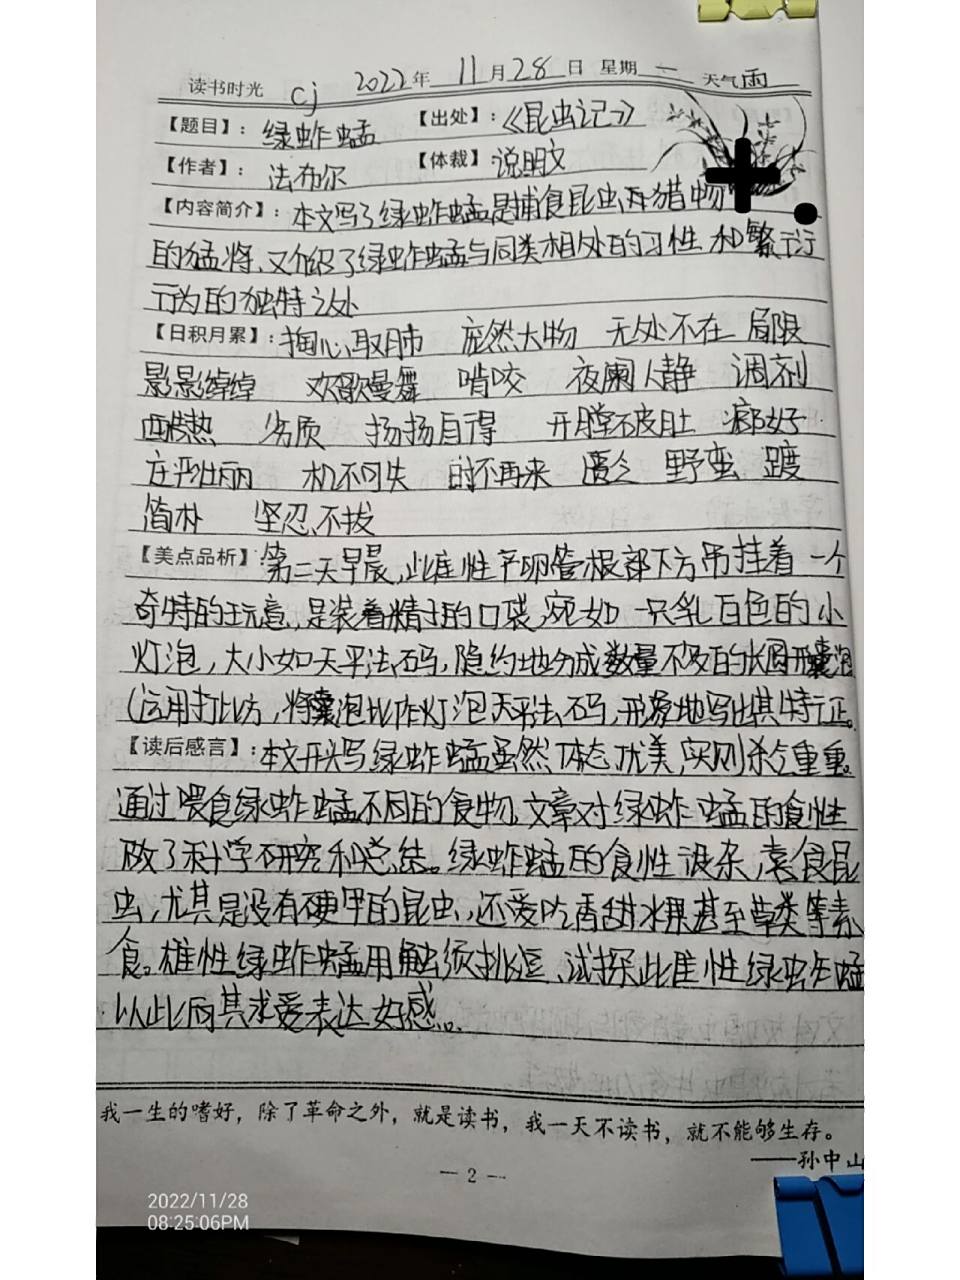 读书时光 cj 2022年 11月28日 星期一 天气雨
【题目】：绿蚱蜢 【出处】：《昆虫记》
【作者】：法布尔 【体裁】：说明文
【内容简介】：本文写了绿蚱蜢是捕食昆虫 猎物
的猛将、又介绍了绿蚱蜢与同类相处的习性和繁衍
行为的独特之处
【日积月累】：掏心取肺 庞然大物 无处不在 局限
影影绰绰 欢歌曼舞 啃咬 夜阑人静 调剂
酷热 劣质 扬扬自得 开膛破肚 癖好
庄严壮丽 机不可失 时不再来 匮乏 野蛮 踱
简朴 坚忍不拔
【美点品析】：第二天早晨，此雌性产卵管根部下方吊挂着一个
奇特的玩意，是装着精子的口袋，宛如一只乳白色的小
灯泡，大小如天平法码，隐约地分成数量不多的长圆形囊泡
（运用打比方，将囊泡比作灯泡天平法码，形象地写出其特征。
【读后感言】：本文开头写绿蚱蜢虽然体态优美，实则杀气重重。
通过喂食绿蚱蜢不同的食物，文章对绿蚱蜢的食性
做了科学研究和总结。绿蚱蜢的食性很杂，喜食昆
虫，尤其是没有硬甲的昆虫，还爱吃香甜水果甚至草类等素
食。雄性绿蚱蜢用触须挑逗、试探此雌性绿蚱蜢
以此向其求爱表达好感。
我一生的嗜好，除了革命之外，就是读书，我一天不读书，就不能够生存。
——孙中山
— 2 —
2022/11/28
08:25:06PM